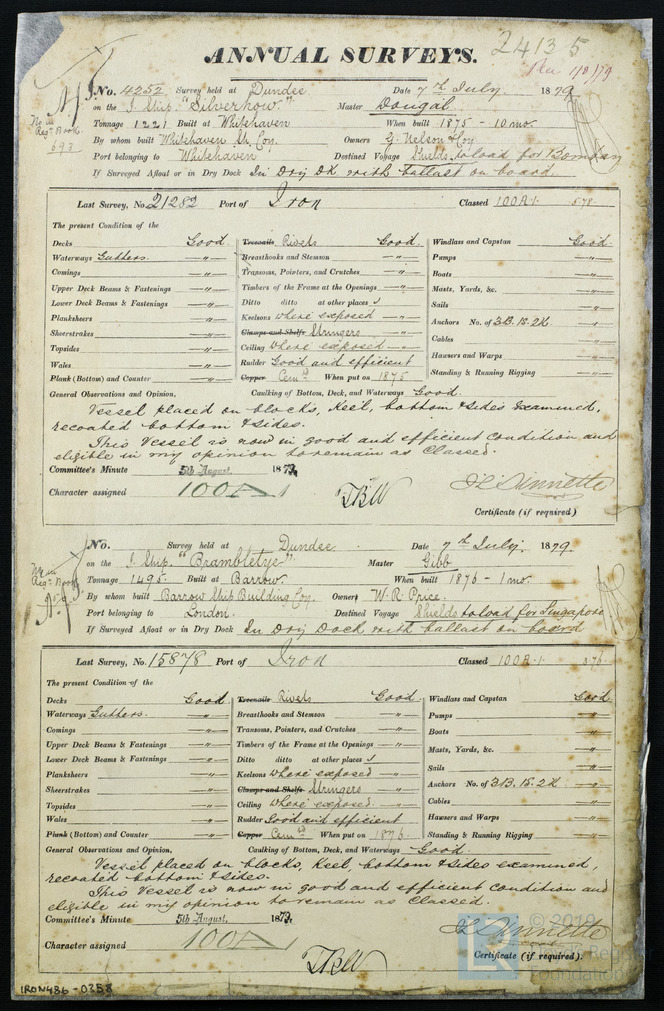 24135
ANNUAL SURVEYS.
No. 4252 Survey held at Dundee Date 7th July. 1879
on the I. Ship. "Silverhow." Master Dougal
No in Regr Book 693
Tonnage 1221 Built at Whitehaven When built 1875 - 10 mo.
By whom built Whitehaven S. Coy. Owners G. Nelson & Coy
Port belonging to Whitehaven Destined Voyage Shields to load for Bombay
If Surveyed Afloat or in Dry Dock In Dry Dk with ballast on board.
Last Survey, No. 21282 Port of Iron Classed 100A.1. 5.78
The present Condition of the
Decks Good Treenails Rivets Good. Windlass and Capstan Good.
Waterways Gutters. " Breasthooks and Stemson " Pumps "
Comings " Transoms, Pointers, and Crutches " Boats "
Upper Deck Beams & Fastenings " Timbers of the Frame at the Openings " Masts, Yards, &c. "
Lower Deck Beams & Fastenings " Ditto ditto at other places " Sails "
Planksheers " Keelsons where exposed " Anchors No. of 3B.1S.2K. "
Sheerstrakes " Clamps and Shelfs Stringers " Cables "
Topsides " Ceiling where exposed " Hawsers and Warps "
Wales " Rudder Good and efficient Standing & Running Rigging "
Plank (Bottom) and Counter " Copper Cemt When put on 1875
General Observations and Opinion, Caulking of Bottom, Deck, and Waterways Good.
Vessel placed on blocks, Keel, bottom & sides examined,
recoated bottom & sides.
This Vessel is now in good and efficient condition and
eligible in my opinion to remain as Classed.
Committee's Minute 5th August, 1879.
Character assigned 100A1
Certificate (if required)
No. Survey held at Dundee. Date 7th July. 1879.
on the I. Ship. "Brambletye". Master Gibb
Tonnage 1495. Built at Barrow. When built 1876 - 1 mo.
By whom built Barrow Ship Building Coy. Owners W. R. Price.
Port belonging to London. Destined Voyage Shields to load for Singapore
If Surveyed Afloat or in Dry Dock In Dry Dock with ballast on board
Last Survey, No. 15878 Port of Iron Classed 100A.1. 3.76
The present Condition of the
Decks Good Treenails Rivets Good. Windlass and Capstan Good.
Waterways Gutters. " Breasthooks and Stemson " Pumps "
Comings " Transoms, Pointers, and Crutches " Boats "
Upper Deck Beams & Fastenings " Timbers of the Frame at the Openings " Masts, Yards, &c. "
Lower Deck Beams & Fastenings " Ditto ditto at other places " Sails "
Planksheers " Keelsons where exposed " Anchors No. of 3B.1S.2K "
Sheerstrakes " Clamps and Shelfs Stringers " Cables "
Topsides " Ceiling where exposed. " Hawsers and Warps "
Wales " Rudder Good and efficient Standing & Running Rigging "
Plank (Bottom) and Counter " Copper Cemtd When put on 1876.
General Observations and Opinion, Caulking of Bottom, Deck, and Waterways Good.
Vessel placed on blocks, Keel, bottom & sides examined,
recoated bottom & sides.
This Vessel is now in good and efficient condition and
eligible in my opinion to remain as Classed.
Committee's Minute 5th August, 1879.
Character assigned 100A1
Certificate (if required).
© 2019
IRON486-0258